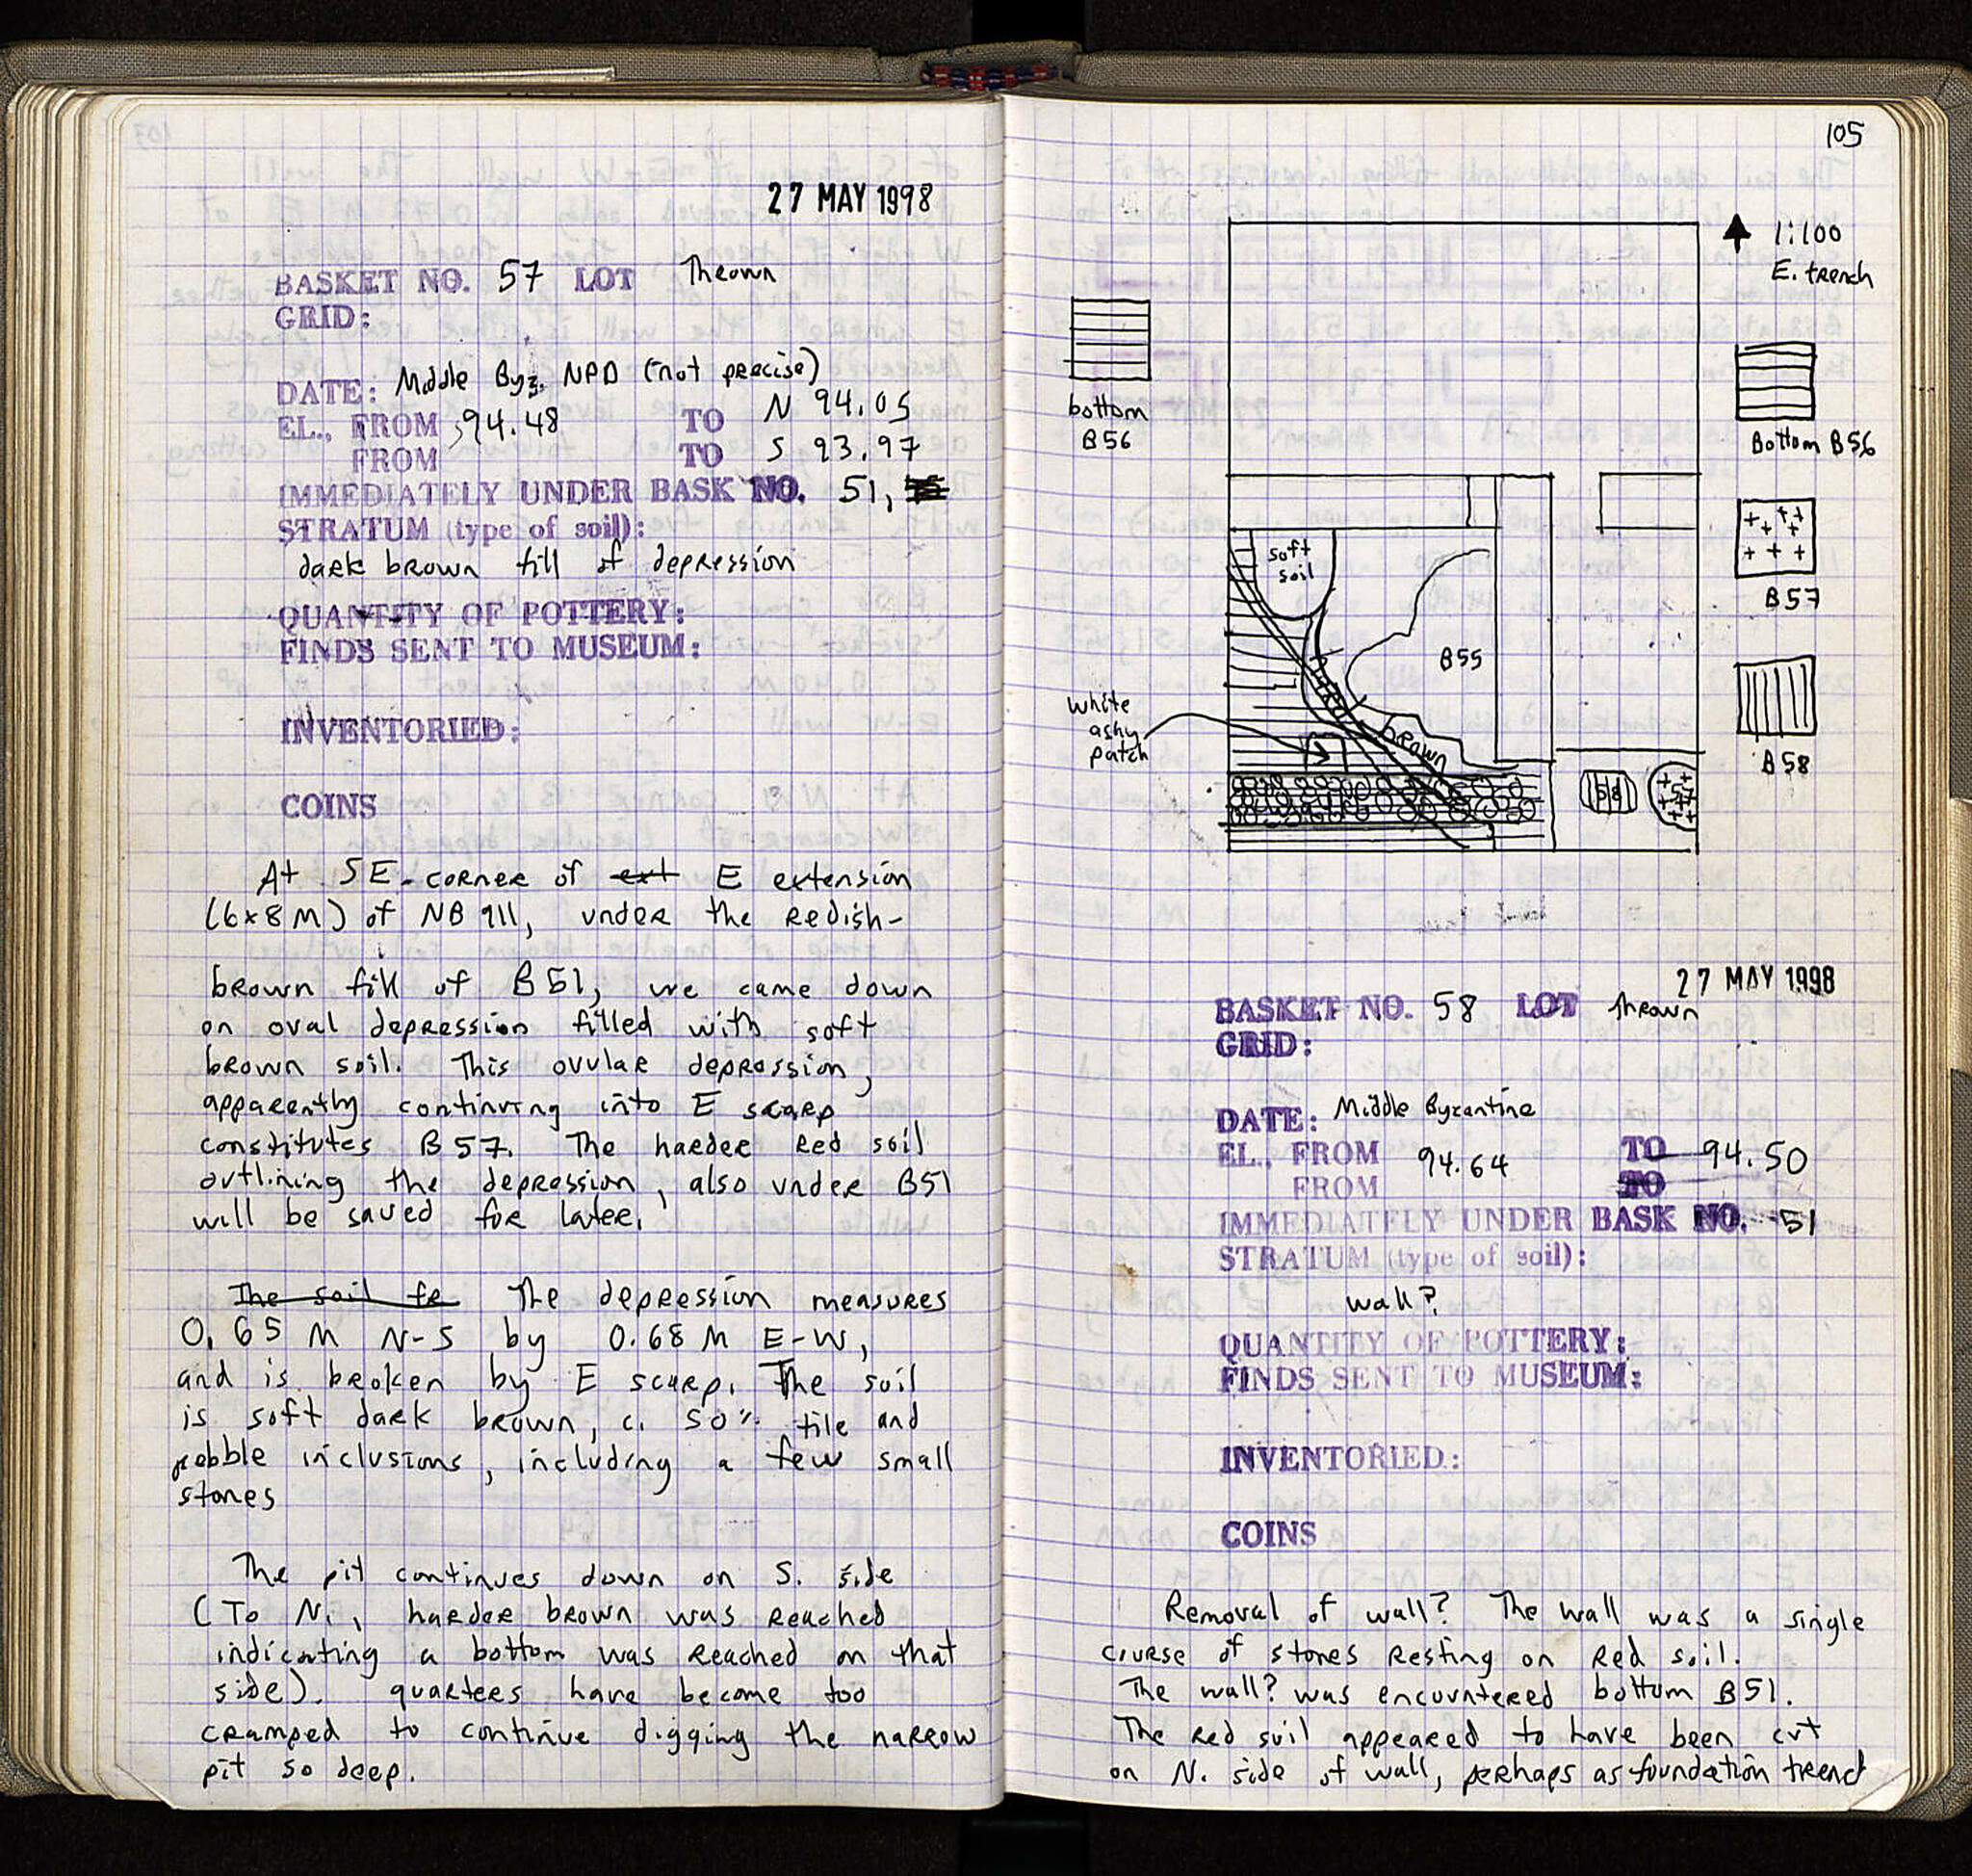 27 MAY 1998
BASKET NO. 57 LOT Thrown
GRID:
DATE: Middle Byz. NPD (not precise)
EL., FROM 94.48 TO N 94.05
FROM TO S 93.97
IMMEDIATELY UNDER BASK NO. 51,
STRATUM (type of soil):
dark brown fill of depression
QUANTITY OF POTTERY:
FINDS SENT TO MUSEUM:
INVENTORIED:
COINS
At SE corner of ext E extension
(6x8 M) of NB 911, under the redish-
brown fill of B51, we came down
on oval depression filled with soft
brown soil. This ovular depression,
apparently continuing into E scarp
constitutes B57. The harder Red soil
outlining the depression, also under B51
will be saved for later.
The soil fe The depression measures
0.65 M N-S by 0.68 M E-W,
and is broken by E scarp. The soil
is soft dark brown, c. 50% tile and
pebble inclusions, including a few small
stones
The pit continues down on S. side
(To N., harder brown was reached
indicating a bottom was reached on that
side). quarters have become too
cramped to continue digging the narrow
pit so deep.
105
1:100
E. trench
bottom
B56
Bottom B56
B57
B58
soft
soil
B55
white
ashy
patch
brown
58
57
27 MAY 1998
BASKET NO. 58 LOT thrown
GRID:
DATE: Middle Byzantine
EL., FROM 94.64 TO 94.50
FROM TO
IMMEDIATELY UNDER BASK NO. 51
STRATUM (type of soil):
wall?
QUANTITY OF POTTERY:
FINDS SENT TO MUSEUM:
INVENTORIED:
COINS
Removal of wall? The wall was a single
course of stones resting on Red soil.
The wall? was encountered bottom B51.
The Red soil appeared to have been cut
on N. side of wall, perhaps as foundation trench